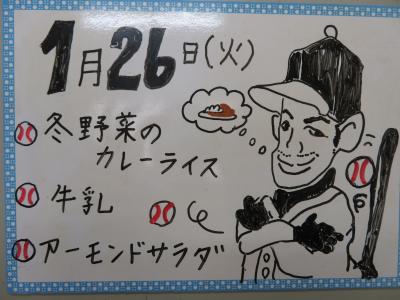 1月26日(火)
冬野菜の
カレーライス
牛乳
アーモンドサラダ